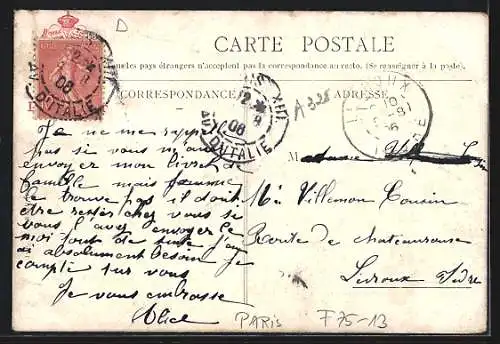 D
CARTE POSTALE
les pays étrangers n'acceptent pas la correspondance au recto. (Se renseigner à la poste).
CORRESPONDANCE
ADRESSE
PARIS XIII
12
9
06
AV. D'ITALIE
A 328
Je ne me rappel
pas si vous m'avez
envoyer mon livret de
famille mais je
le trouve pas il doit
être restés chez vous si
vous l'avez envoyer le
moi tout de suite j'en
ai absolument besoin je
compte sur vous
Je vous embrasse
Alice
M
Me Villemon Cousin
Route de chateauroux
Ledroux Indre
PARIS
F75-13